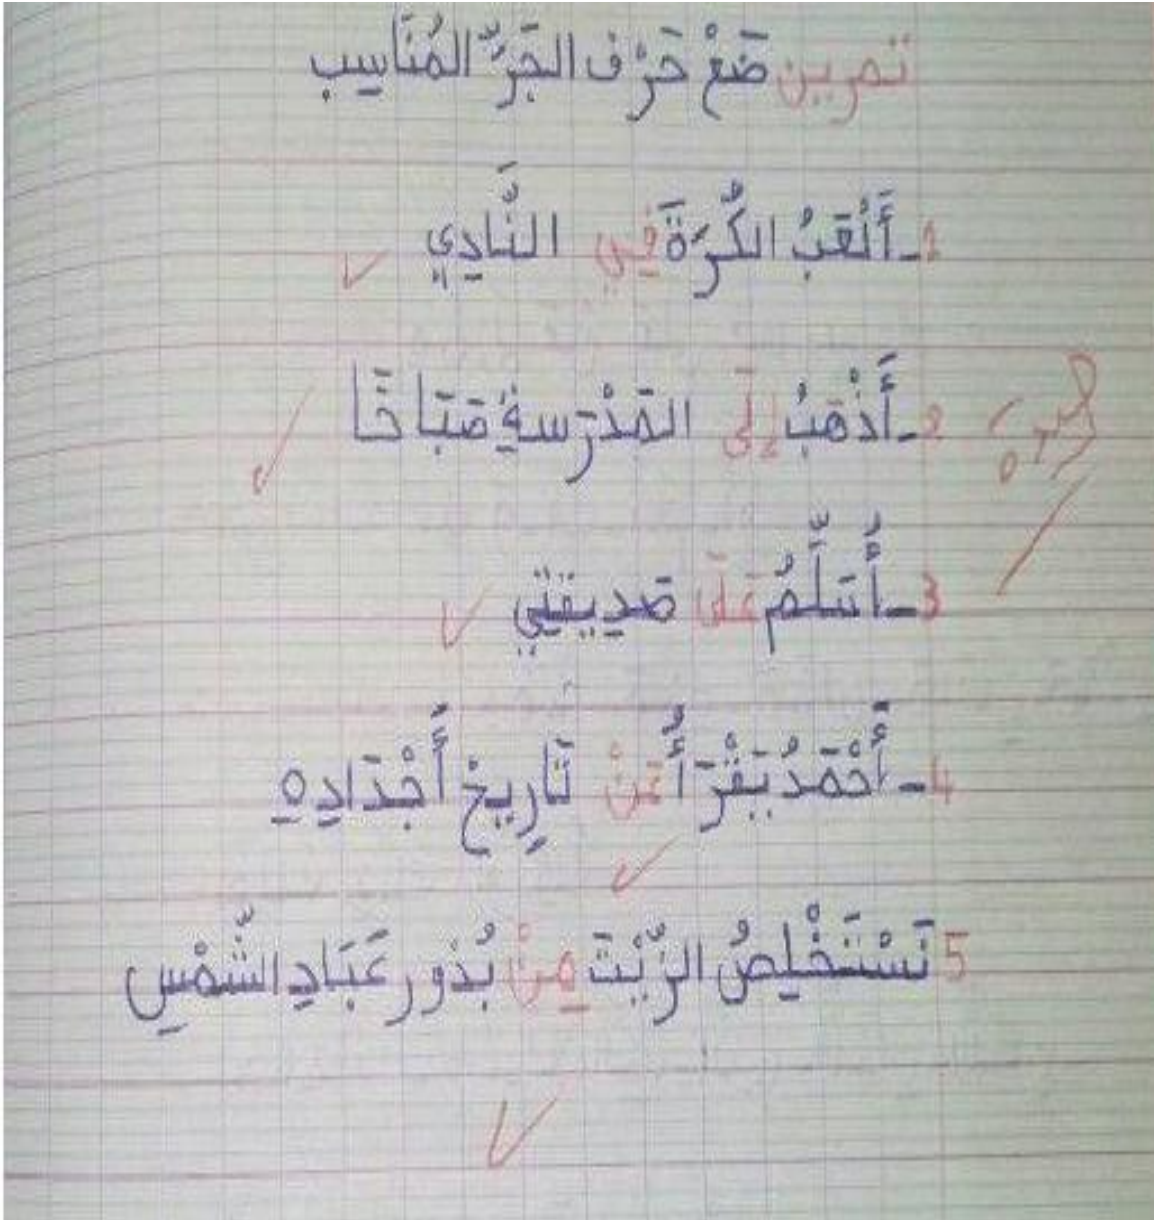 تمرين ضَعْ حَرْف الجَرِّ المُنَاسِب
1- أَلْعَبُ الكُرَةَ فِي النَّادِي
2- أَذْهَبُ إِلَى المَدْرَسةِ صَبَاحًا
3- أُسَلِّمُ عَلَى صَدِيقَتِي
4- أَحْمَدُ يَقْرَأُ عَنْ تَارِيخِ أَجْدَادِهِ
5 نَسْتَخْلِصُ الزَّيْتَ مِنْ بُذُور عَبَادِ الشَّمْسِ